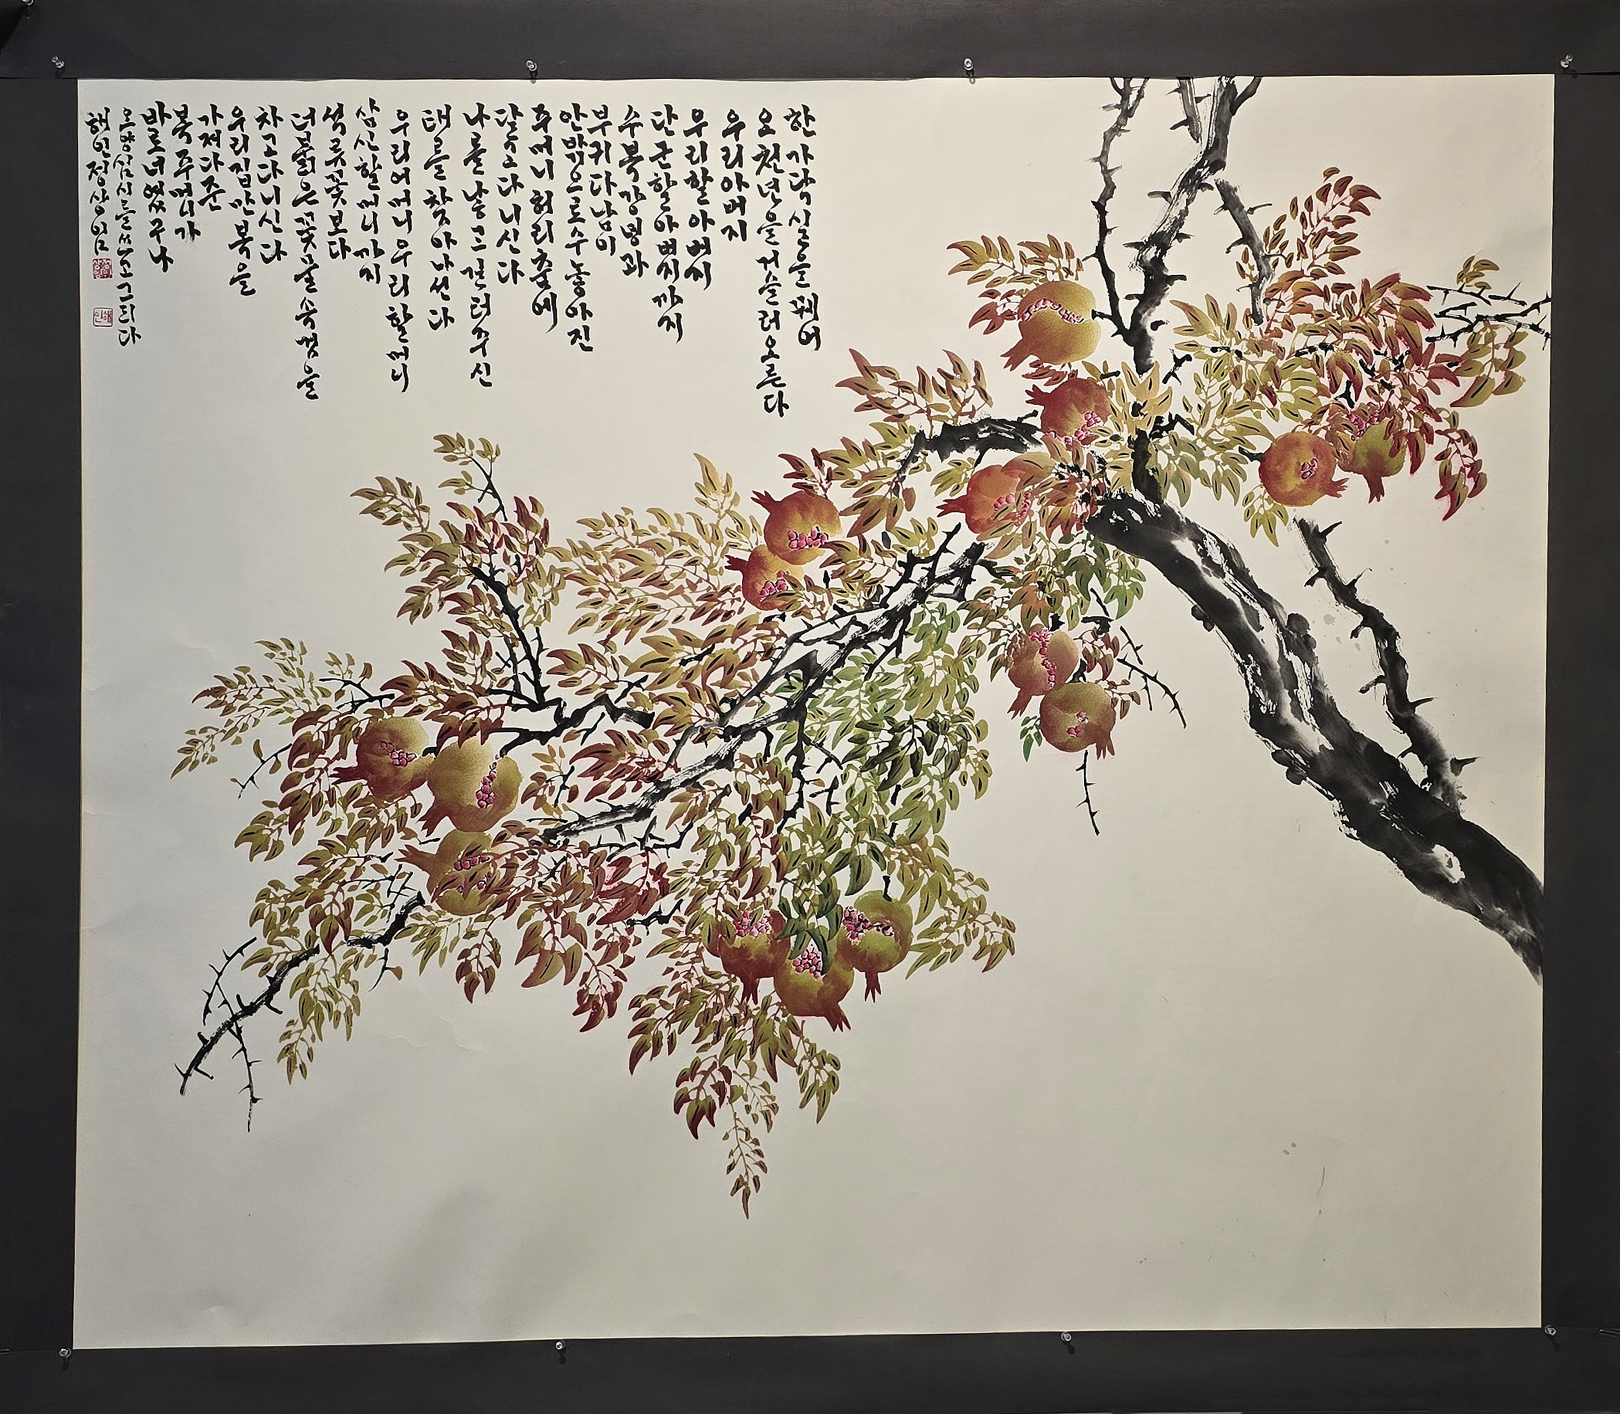 한가닥 실을 꿰어
오천년을 거슬러 오른다
우리 아버지
우리 할아버지
단군 할아버지까지
수복강녕과
부귀다남이
안밖으로 수놓아진
주머니 허리춤에
달고 다니신다
나를 낳으실 터주신
태를 찾아 나선다
우리 어머니 우리 할머니
삼신할머니까지
석류꽃보다
더 붉은 꽃물 속곳을
차고 다니신다
우리집 만복을
가져다준
복주머니가
바로 너였구나
오양심 시를 쓰고 그리다
해인 정상임